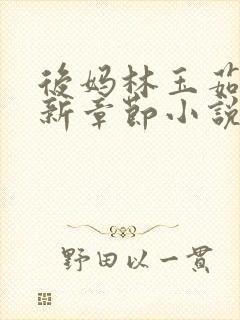 後妈林玉茹
新章節小說
野田以一貫